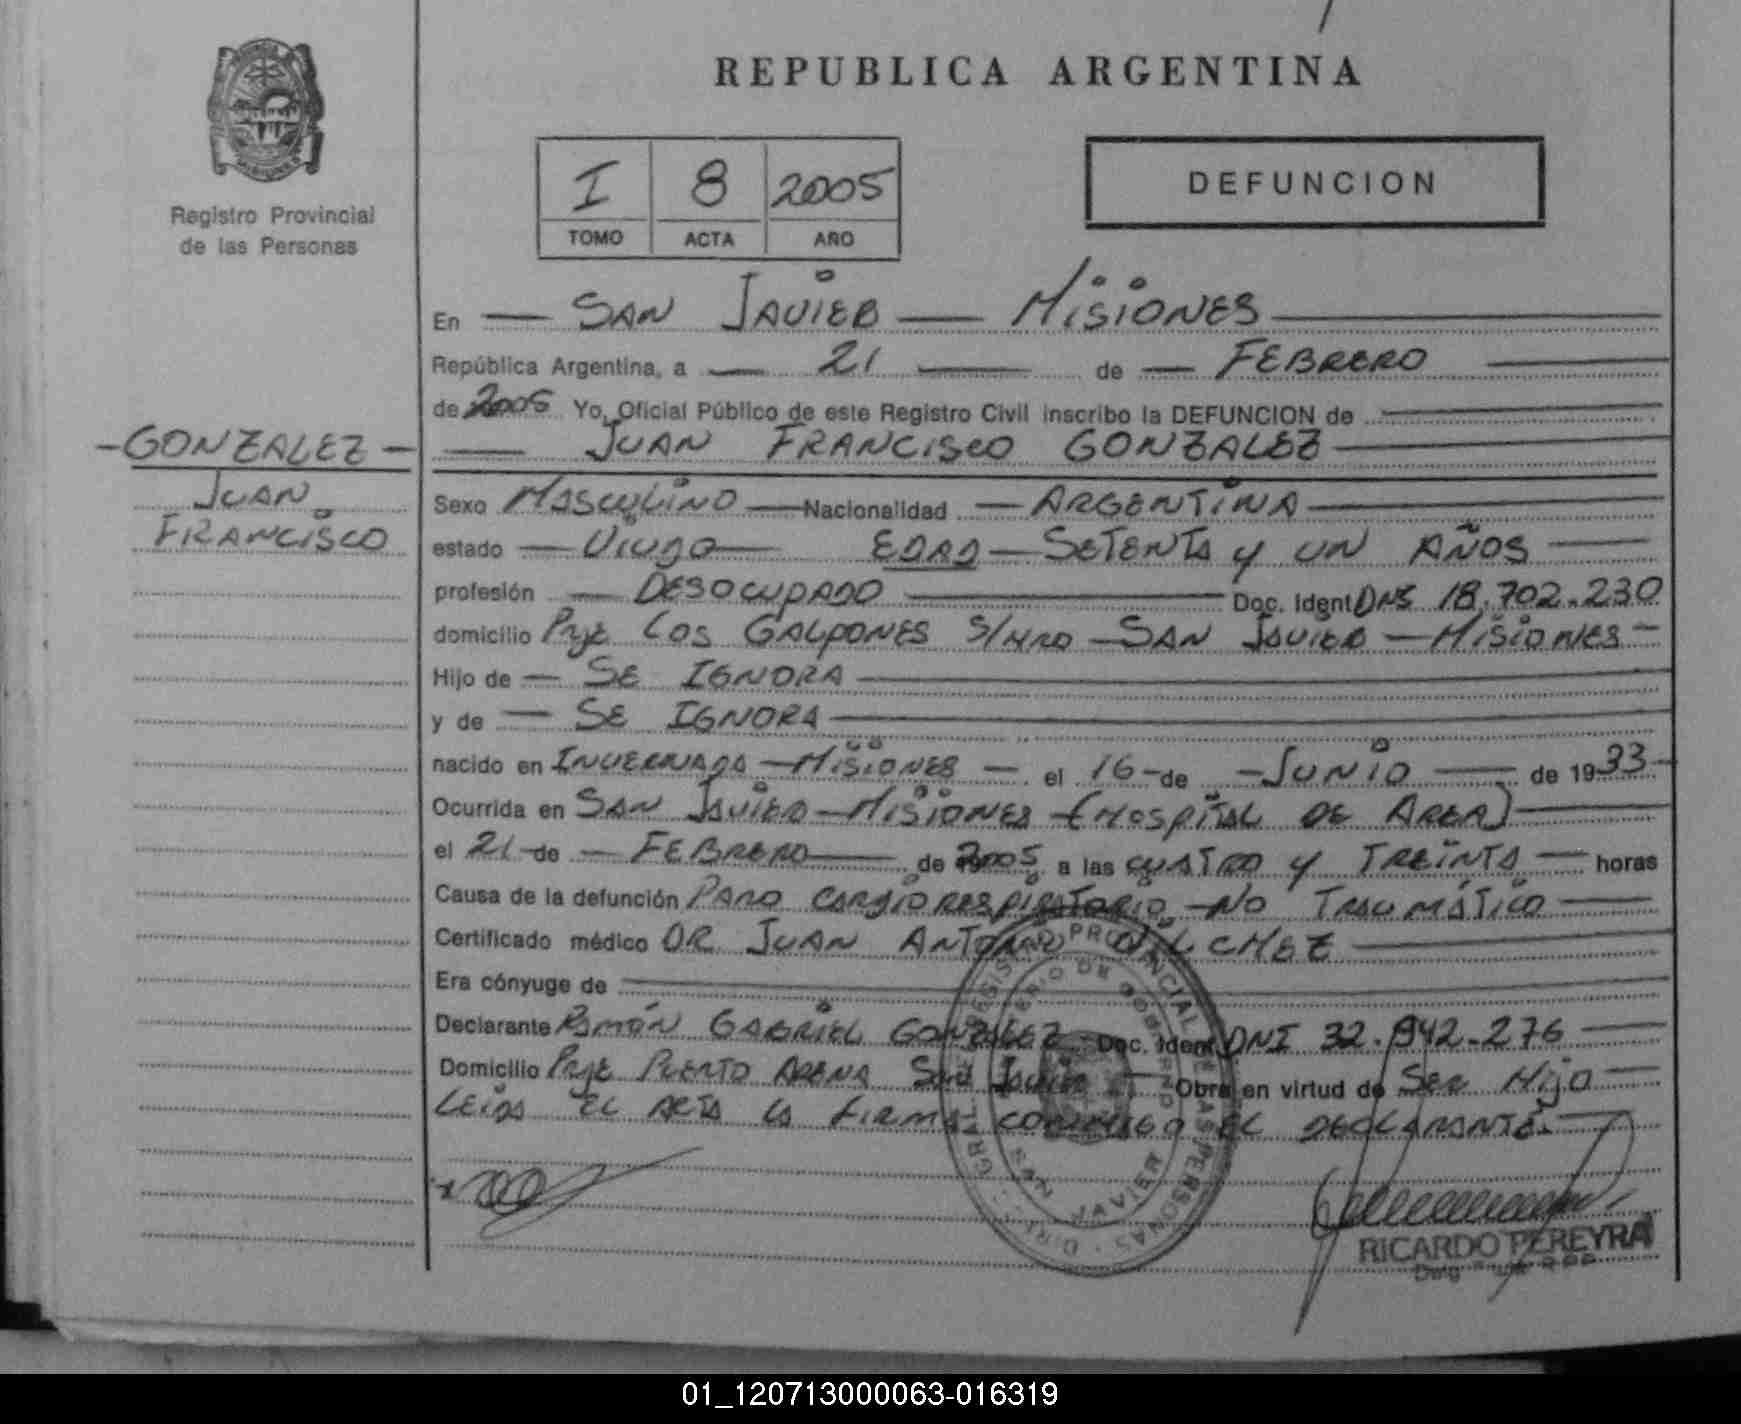 REPUBLICA ARGENTINA
Registro Provincial
de las Personas
I 8 2005
TOMO ACTA AÑO
DEFUNCION
En — SAN JAVIER — MISIONES —
República Argentina, a — 21 — de — FEBRERO —
de 2005 Yo, Oficial Público de este Registro Civil inscribo la DEFUNCION de —
— JUAN FRANCISCO GONZALEZ —
- GONZALEZ -
JUAN
FRANCISCO
Sexo MASCULINO — Nacionalidad — ARGENTINA —
estado — VIUDO — EDAD — SETENTA y UN AÑOS —
profesión — DESOCUPADO — Doc. Ident DNI 18.702.230
domicilio Prje LOS GALPONES S/NRO — SAN JAVIER — MISIONES —
Hijo de — SE IGNORA —
y de — SE IGNORA —
nacido en INVERNADA — MISIONES — el 16 - de — JUNIO — de 1933 —
Ocurrida en SAN JAVIER — MISIONES — (HOSPITAL DE AREA) —
el 21 - de — FEBRERO — de 2005 a las CUATRO y TREINTA — horas
Causa de la defunción PARO CARDIORESPIRATORIO — NO TRAUMÁTICO —
Certificado médico DR. JUAN ANTONIO VILCHEZ —
Era cónyuge de —
Declarante RAMÓN GABRIEL GONZALEZ Doc. Ident DNI 32.942.276 —
Domicilio Prje PUERTO ARENA SAN JAVIER — Obra en virtud de SER HIJO —
LEIDA EL ACTA LA FIRMA CONMIGO EL DECLARANTE. —
REGISTRO PROVINCIAL DE LAS PERSONAS
RICARDO PEREYRA
01_120713000063-016319